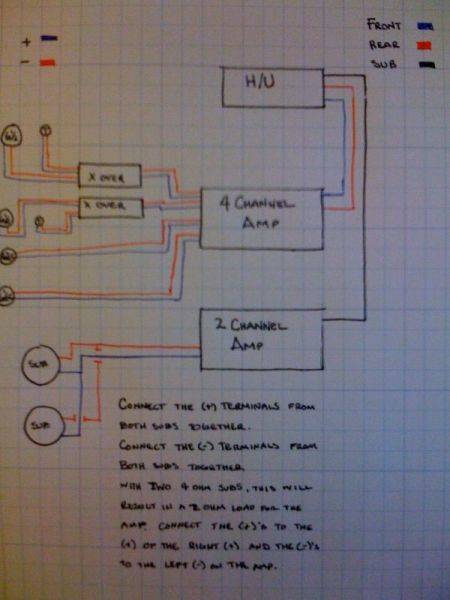 FRONT
REAR
SUB
+
-
H/U
X OVER
X OVER
4 CHANNEL
AMP
2 CHANNEL
AMP
SUB
SUB
CONNECT THE (+) TERMINALS FROM
BOTH SUBS TOGETHER.
CONNECT THE (-) TERMINALS FROM
BOTH SUBS TOGETHER
WITH TWO 4 OHM SUBS, THIS WILL
RESULT IN A 2 OHM LOAD FOR THE
AMP. CONNECT THE (+)'S TO THE
(+) OF THE RIGHT (+) AND THE (-)'S
TO THE LEFT (-) ON THE AMP.